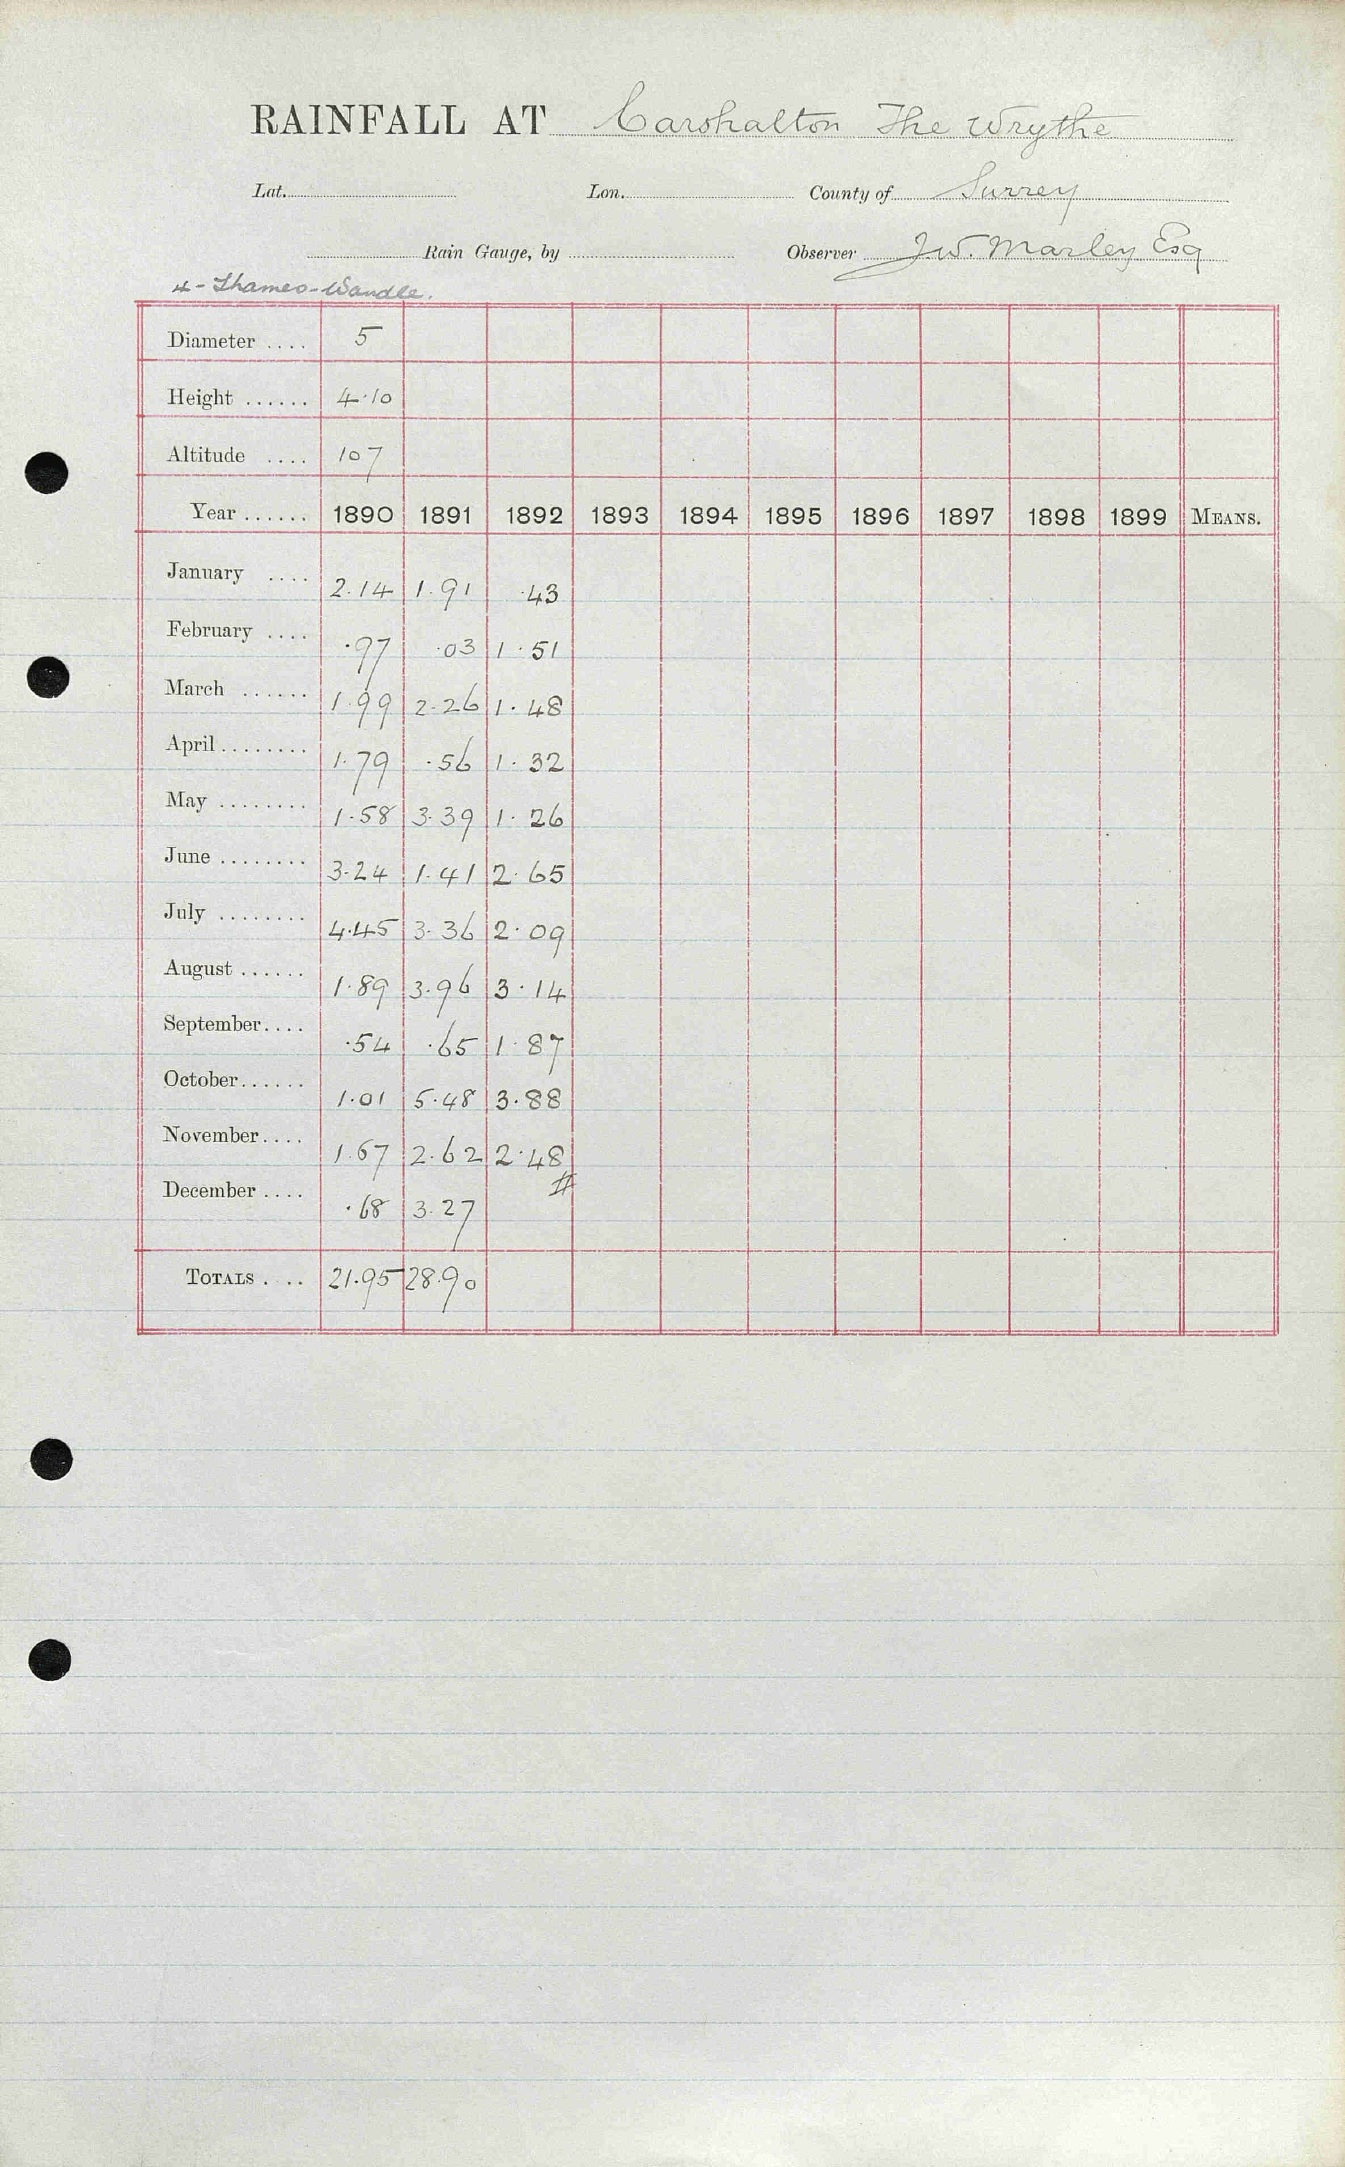 RAINFALL AT Carshalton The Wrythe
Lat. Lon. County of Surrey
Rain Gauge, by Observer J.W. Marley Esq
4 - Thames - Wandle.
Diameter .... 5
Height ...... 4.10
Altitude .... 107
Year ...... 1890 1891 1892 1893 1894 1895 1896 1897 1898 1899 MEANS.
January .... 2.14 1.91 .43
February .... .97 .03 1.51
March ...... 1.99 2.26 1.48
April ........ 1.79 .56 1.32
May ........ 1.58 3.39 1.26
June ........ 3.24 1.41 2.65
July ........ 4.45 3.36 2.09
August ...... 1.89 3.96 3.14
September .... .54 .65 1.87
October ...... 1.01 5.48 3.88
November .... 1.67 2.62 2.48
#
December .... .68 3.27
TOTALS . .. 21.95 28.90